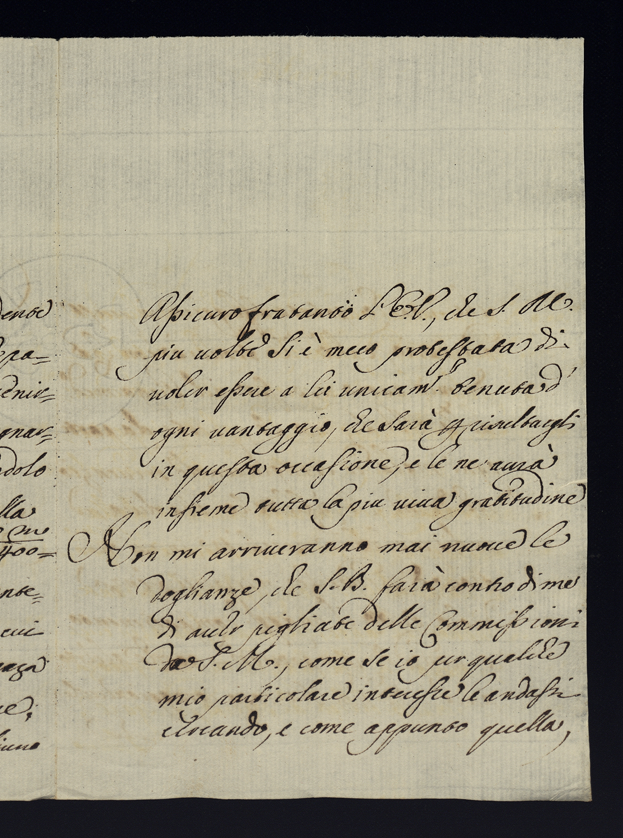 Assicuro frattanto l'E.V., che S. M.
piu volte si è meco protestata di
voler essere a lei unicam.te tenuta d'
ogni vantaggio, che sarà p risultargli
in questa occasione, e le ne avrà
insieme tutta la piu viva gratitudine
Non mi arriveranno mai nuove le
doglianze, che S.B. farà contro di me
di aver pigliate delle Commissioni
da S. M., come se io per qualche
mio particolare interesse le andassi
cercando, e come appunto quella,